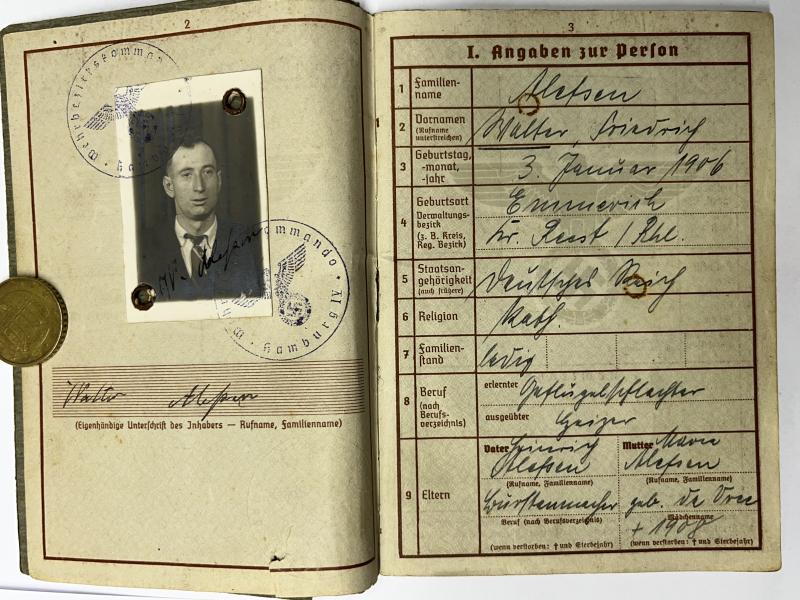 2
Wehrbezirkskommando
Hamburg
W. Alefsen
Wehrbezirkskommando
Hamburg IV
Walter Alefsen
(Eigenhändige Unterschrift des Inhabers — Rufname, Familienname)
3
I. Angaben zur Person
1 Familien-
name
Alefsen
2 Vornamen
(Rufname
unterstreichen)
Walter, Friedrich
3 Geburtstag,
-monat,
-jahr
3. Januar 1906
4 Geburtsort
Verwaltungs-
bezirk
(z. B. Kreis,
Reg. Bezirk)
Emmerich
Kr. Rees / Rhl.
5 Staatsan-
gehörigkeit
(auch frühere)
Deutsches Reich
6 Religion
kath.
7 Familien-
stand
ledig
8 Beruf
(nach
Berufs-
verzeichnis)
erlernter Geflügelschlachter
ausgeübter Heizer
9 Eltern
Vater Heinrich
Alefsen
(Rufname, Familienname)
Bürstenmacher
Beruf (nach Berufsverzeichnis)
(wenn verstorben: † und Sterbejahr)
Mutter Marie
Alefsen
(Rufname, Familienname)
geb. de
Mädchenname
+ 1908
(wenn verstorben: † und Sterbejahr)